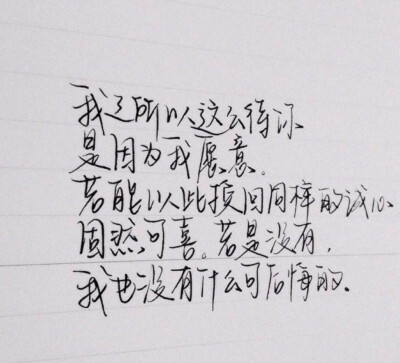 我之所以这么待你
是因为我愿意.
若能以此换回同样的诚心
固然可喜。若是没有,
我也没有什么可后悔的.